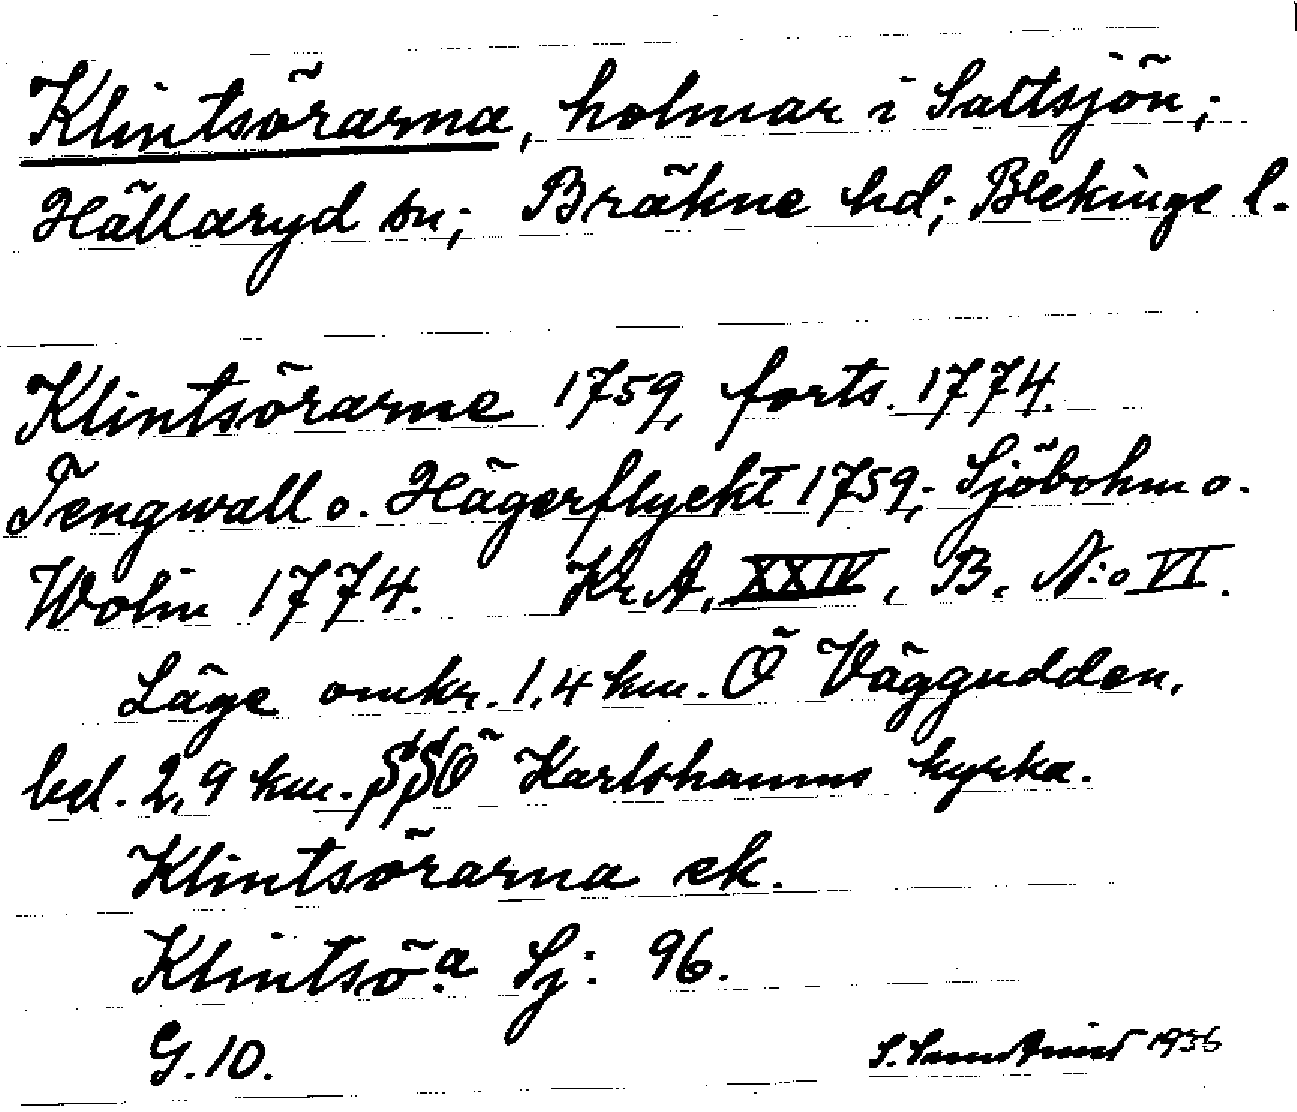 Klintsörarna, holmar i Saltsjön;
Hällaryd sn; Bräkne hd; Blekinge l.
Klintsörarne 1759, forts. 1774.
Tengwall o. Hägerflyckt 1759; Sjöbohm o.
Wolin 1774. Kr. A, XXIV, B. N:o VI.
Läge omkr. 1,4 km. Ö Väggudden,
bel. 2,9 km. SSÖ Karlshamns kyrka.
Klintsörarna ek.
Klintsö:a Sj: 96.
G. 10. S. 1936